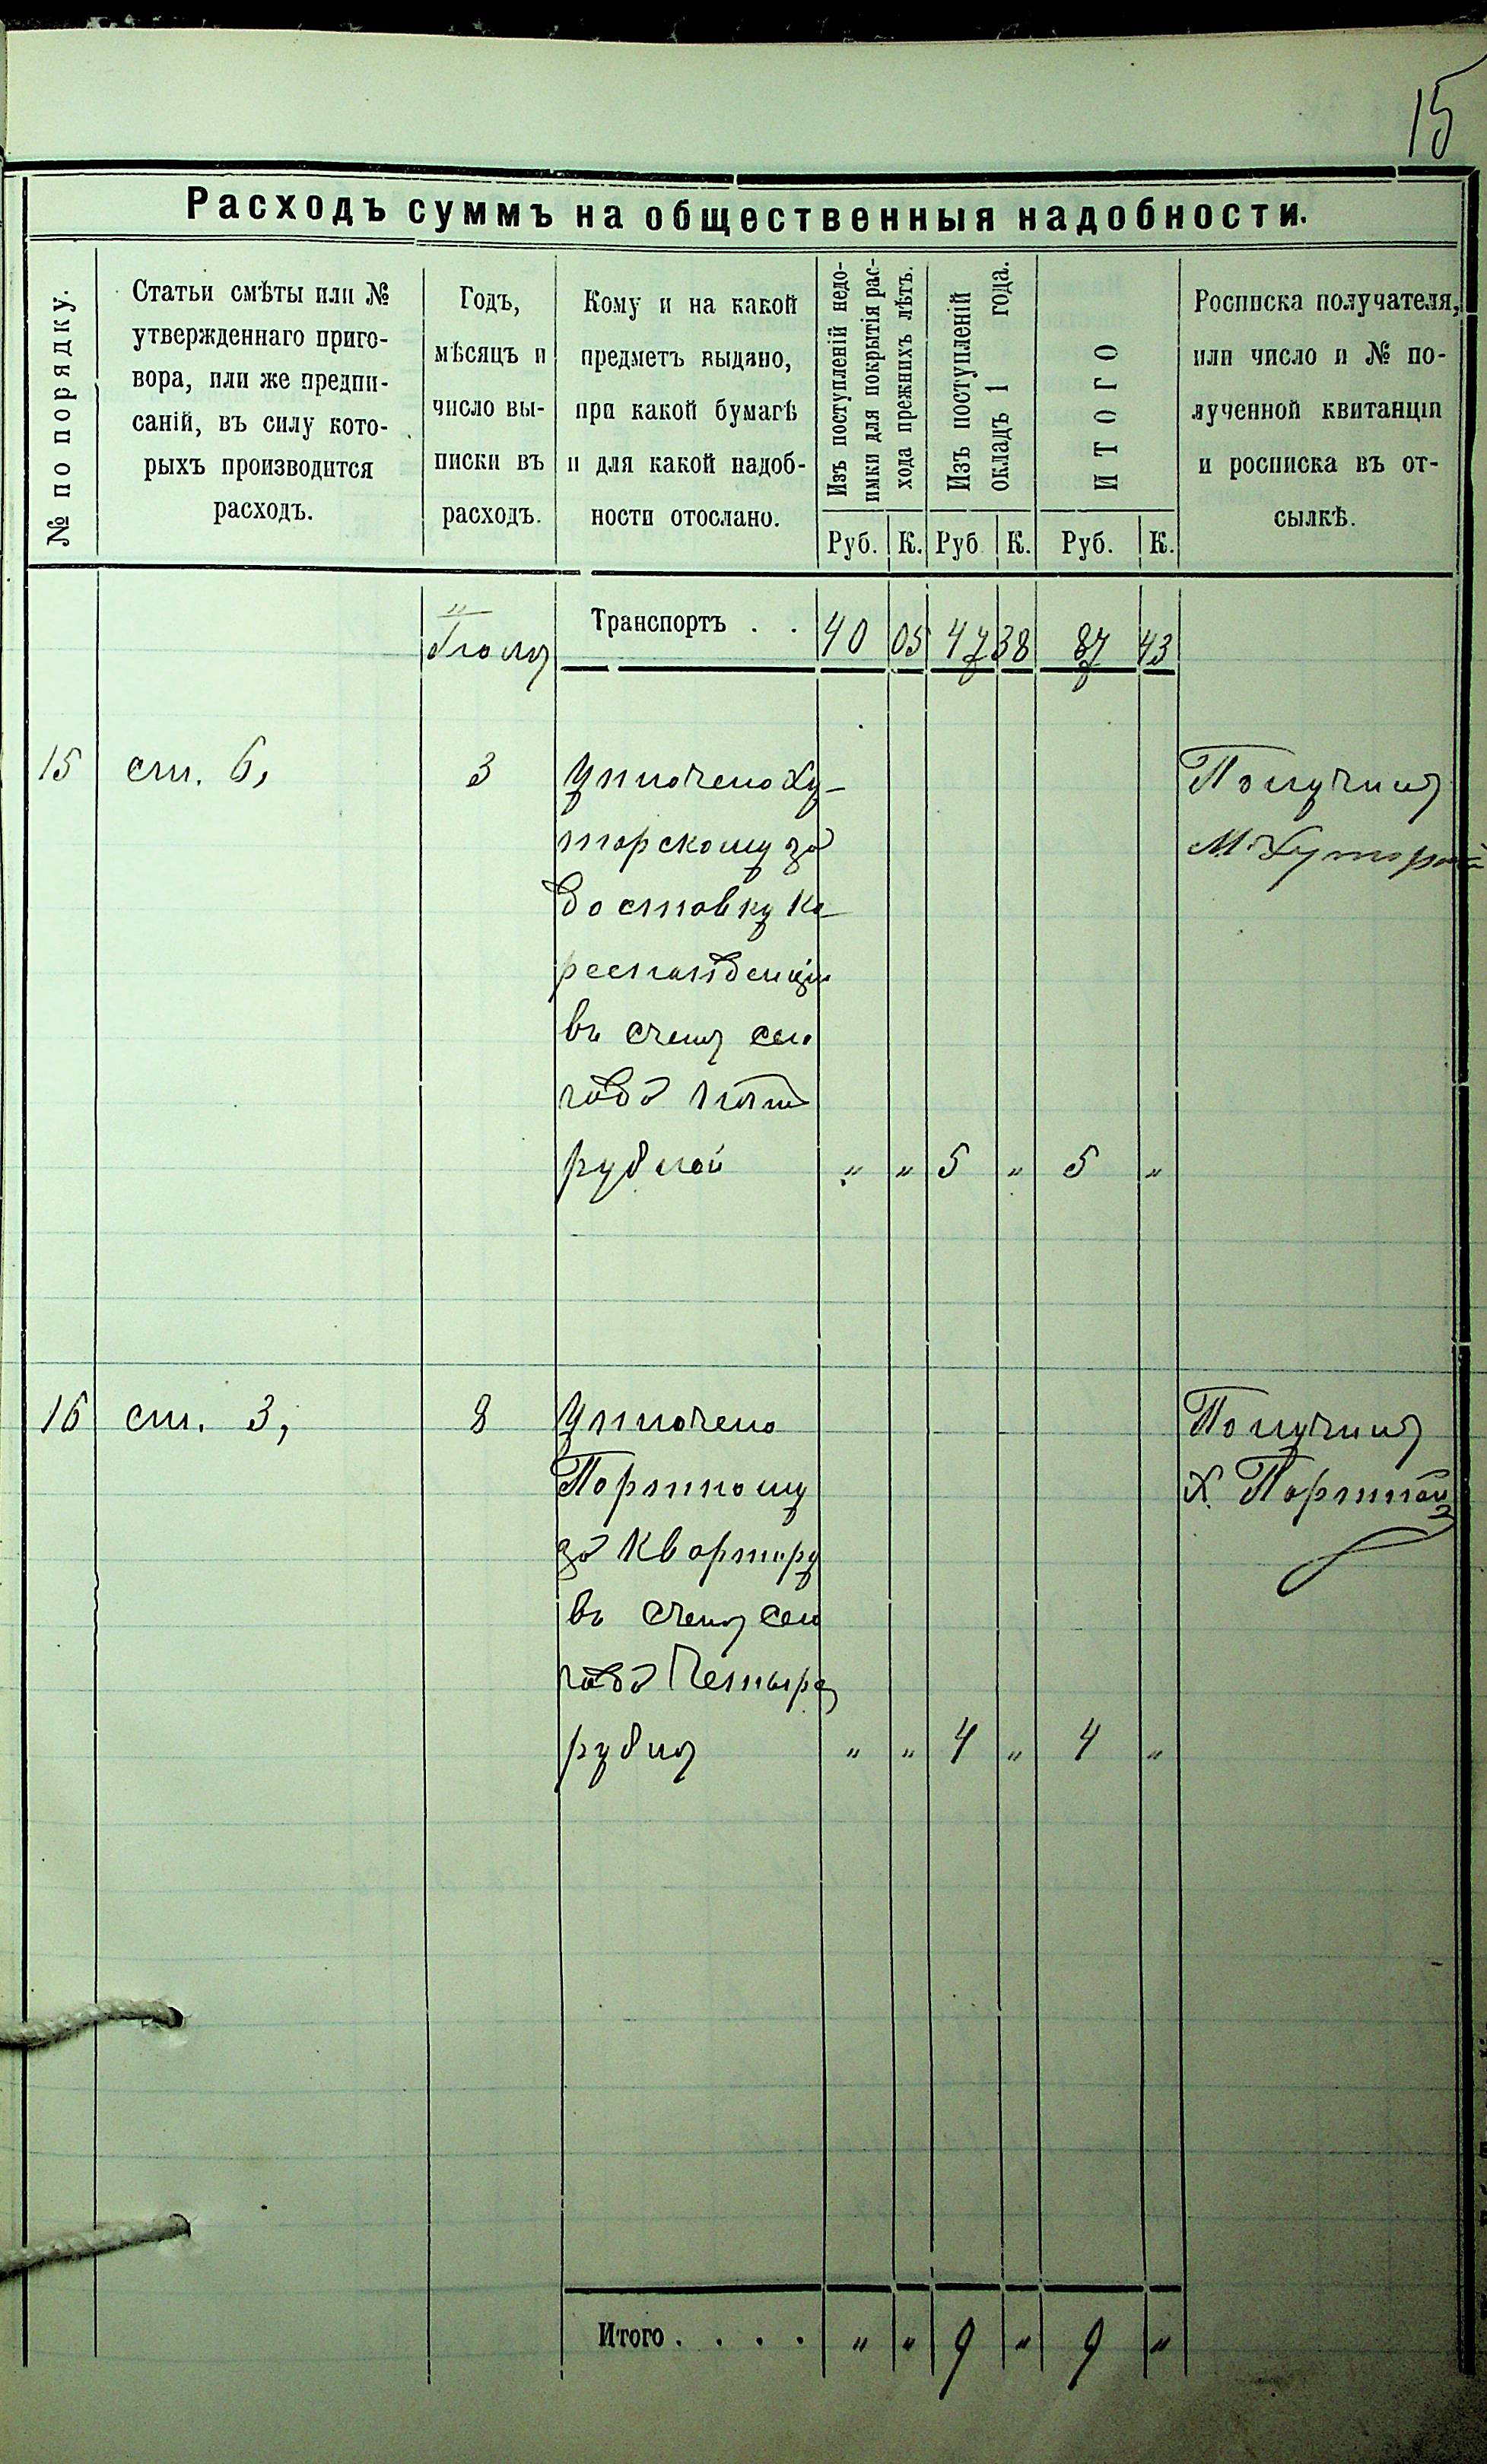 15
Расходъ суммъ на общественныя надобности.
№ по порядку.
Статьи смѣты или №
утвержденнаго приго-
вора, или же предпи-
саній, въ силу кото-
рыхъ производится
расходъ.
Годъ,
мѣсяцъ и
число вы-
писки въ
расходъ.
Кому и на какой
предметъ выдано,
при какой бумагѣ
и для какой надоб-
ности отослано.
Изъ поступленій недо-
имки для покрытія рас-
хода прежнихъ лѣтъ.
Изъ поступленій
окладъ 1 года.
ИТОГО
Росписка получателя,
или число и № по-
лученной квитанціи
и росписка въ от-
сылкѣ.
Руб. К. Руб К. Руб. К.
Транспортъ . . 40 05 47 38 87 43
Іюля
15 ст. 6, 3 Уплочено Ху-
торскому за
доставку ко
респонденціи
въ счетъ сего
года пять
рублей " " 5 " 5 "
Получилъ
М. Хуторской
16 ст. 3, 8 Уплочено
Портному
за квартиру
въ счетъ сего
года Четыре
рубля " " 4 " 4 "
Получилъ
Х. Портной
Итого . . . . " " 9 " 9 "